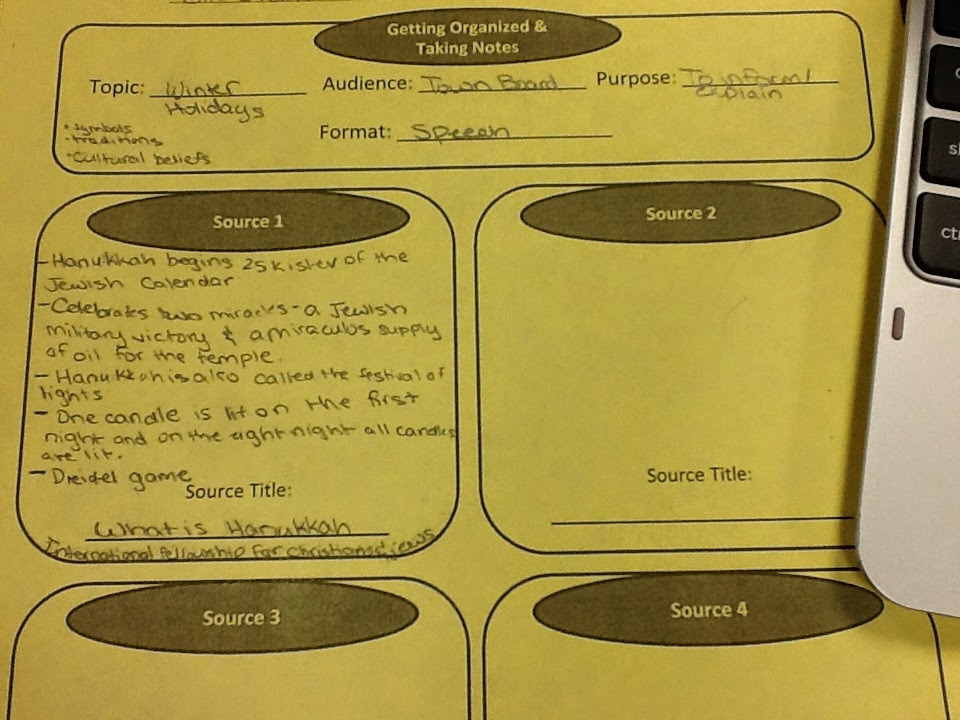 Getting Organized &
Taking Notes
Topic: Winter
Holidays
Audience: Town Board
Purpose: To inform/
explain
• symbols
• traditions
• Cultural beliefs
Format: Speech
Source 1
- Hanukkah begins 25 Kislev of the
Jewish Calendar
- Celebrates two miracles - a Jewish
military victory & a miraculus supply
of oil for the temple.
- Hanukkah is also called the festival of
lights
- One candle is lit on the first
night and on the eight night all candles
are lit.
- Dreidel game
Source Title:
What is Hanukkah
International fellowship for Christians & jews
Source 2
Source Title:
Source 3
Source 4